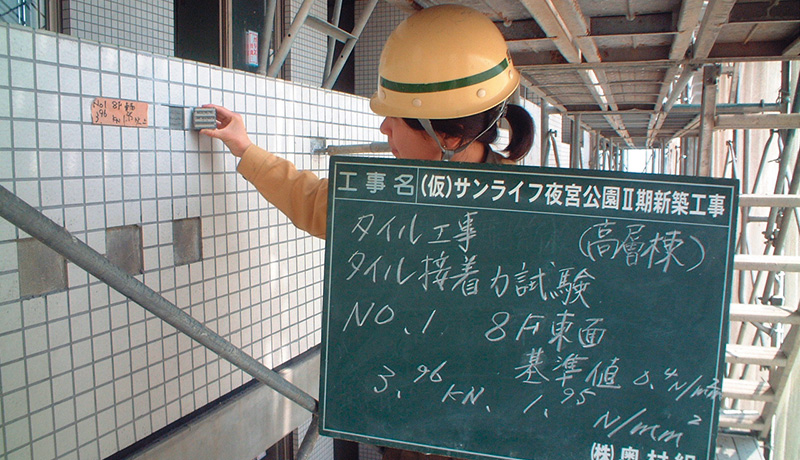 NO1 8F東面
3.96 KN 1.95 N/mm2
工事名 (仮)サンライフ夜宮公園II期新築工事
タイル工事 (高層棟)
タイル接着力試験
NO.1 8F東面
基準値 0.4N/mm2
3.96 KN. 1.95 N/mm2
(株)奥村組